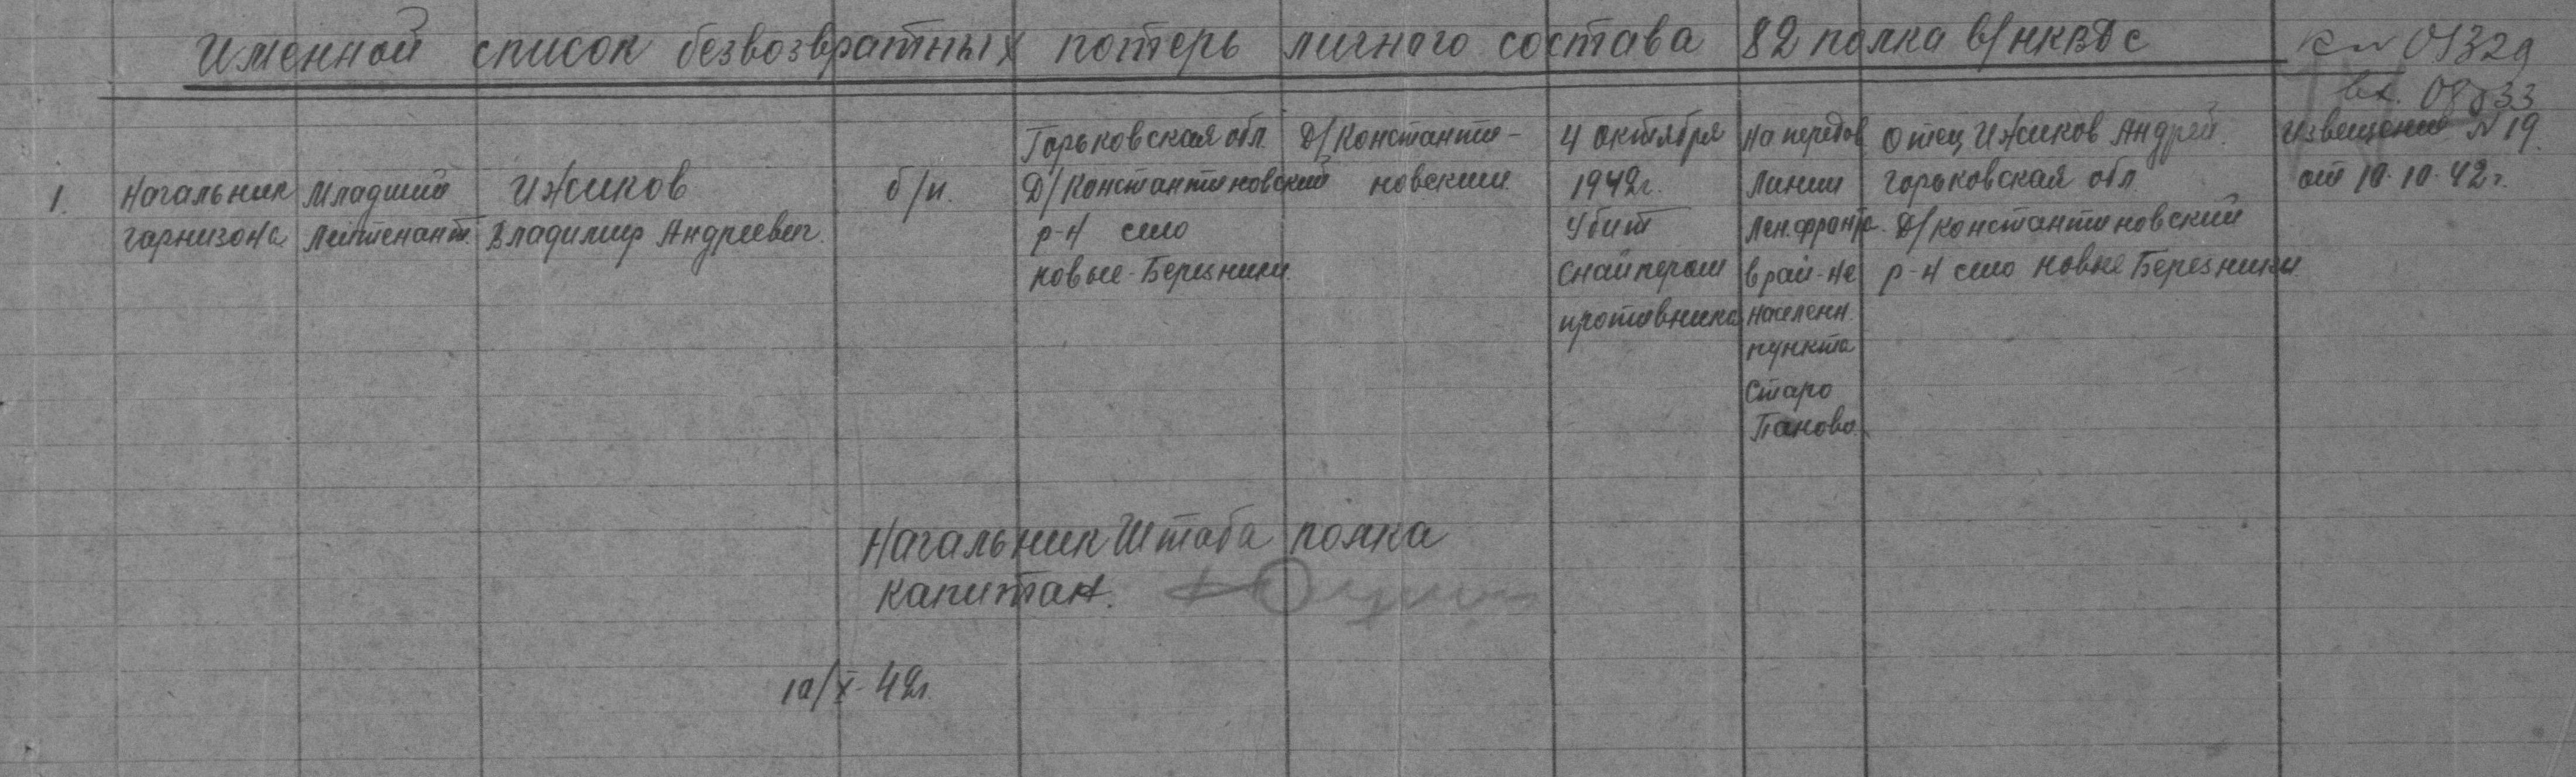 Именной список безвозвратных потерь личного состава 82 полка в/НКВД с
01329
вх. 08533
1.
Начальник
гарнизона
Младший
Лейтенант.
Ижиков
Владимир Андреевич.
б/п.
Горьковская обл.
Д/Константиновский
р-н село
Новые-Березники.
Д/Константи-
новский
4 октября
1942г.
Убит
снайпером
противника
На передов.
линии
Лен.фронта
в рай-не
населенн.
пункта
Старо
Паново.
Отец Ижиков Андрей.
Горьковская обл.
Д/Константиновский
р-н село Новые Березники.
Извещение №19
от 10.10.42г.
Начальник Штаба полка
капитан.
10/X-42г.